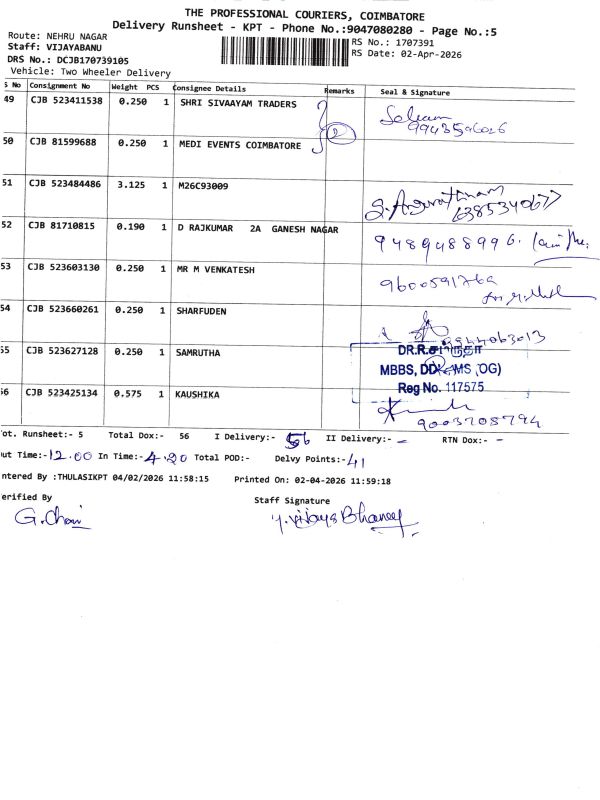 THE PROFESSIONAL COURIERS, COIMBATORE
Delivery Runsheet - KPT - Phone No.:9047080280 - Page No.:5
Route: NEHRU NAGAR
RS No.: 1707391
Staff: VIJAYABANU
RS Date: 02-Apr-2026
DRS No.: DCJB170739105
Vehicle: Two Wheeler Delivery
S No Consignment No Weight PCS Consignee Details Remarks Seal & Signature
49 CJB 523411538 0.250 1 SHRI SIVAAYAM TRADERS
2
50 CJB 81599688 0.250 1 MEDI EVENTS COIMBATORE
51 CJB 523484486 3.125 1 M26C93009
52 CJB 81710815 0.190 1 D RAJKUMAR 2A GANESH NAGAR 9489488996.
53 CJB 523603130 0.250 1 MR M VENKATESH
54 CJB 523660261 0.250 1 SHARFUDEN
55 CJB 523627128 0.250 1 SAMRUTHA
DR.R.சம்ருதா
MBBS, MS (OG)
Reg No. 117575
56 CJB 523425134 0.575 1 KAUSHIKA 9003708794
ot. Runsheet:- 5 Total Dox:- 56 I Delivery:- 56 II Delivery:- - RTN Dox:- -
ut Time:-12.00 In Time:-4.20 Total POD:- Delvy Points:-41
ntered By :THULASIKPT 04/02/2026 11:58:15 Printed On: 02-04-2026 11:59:18
erified By Staff Signature